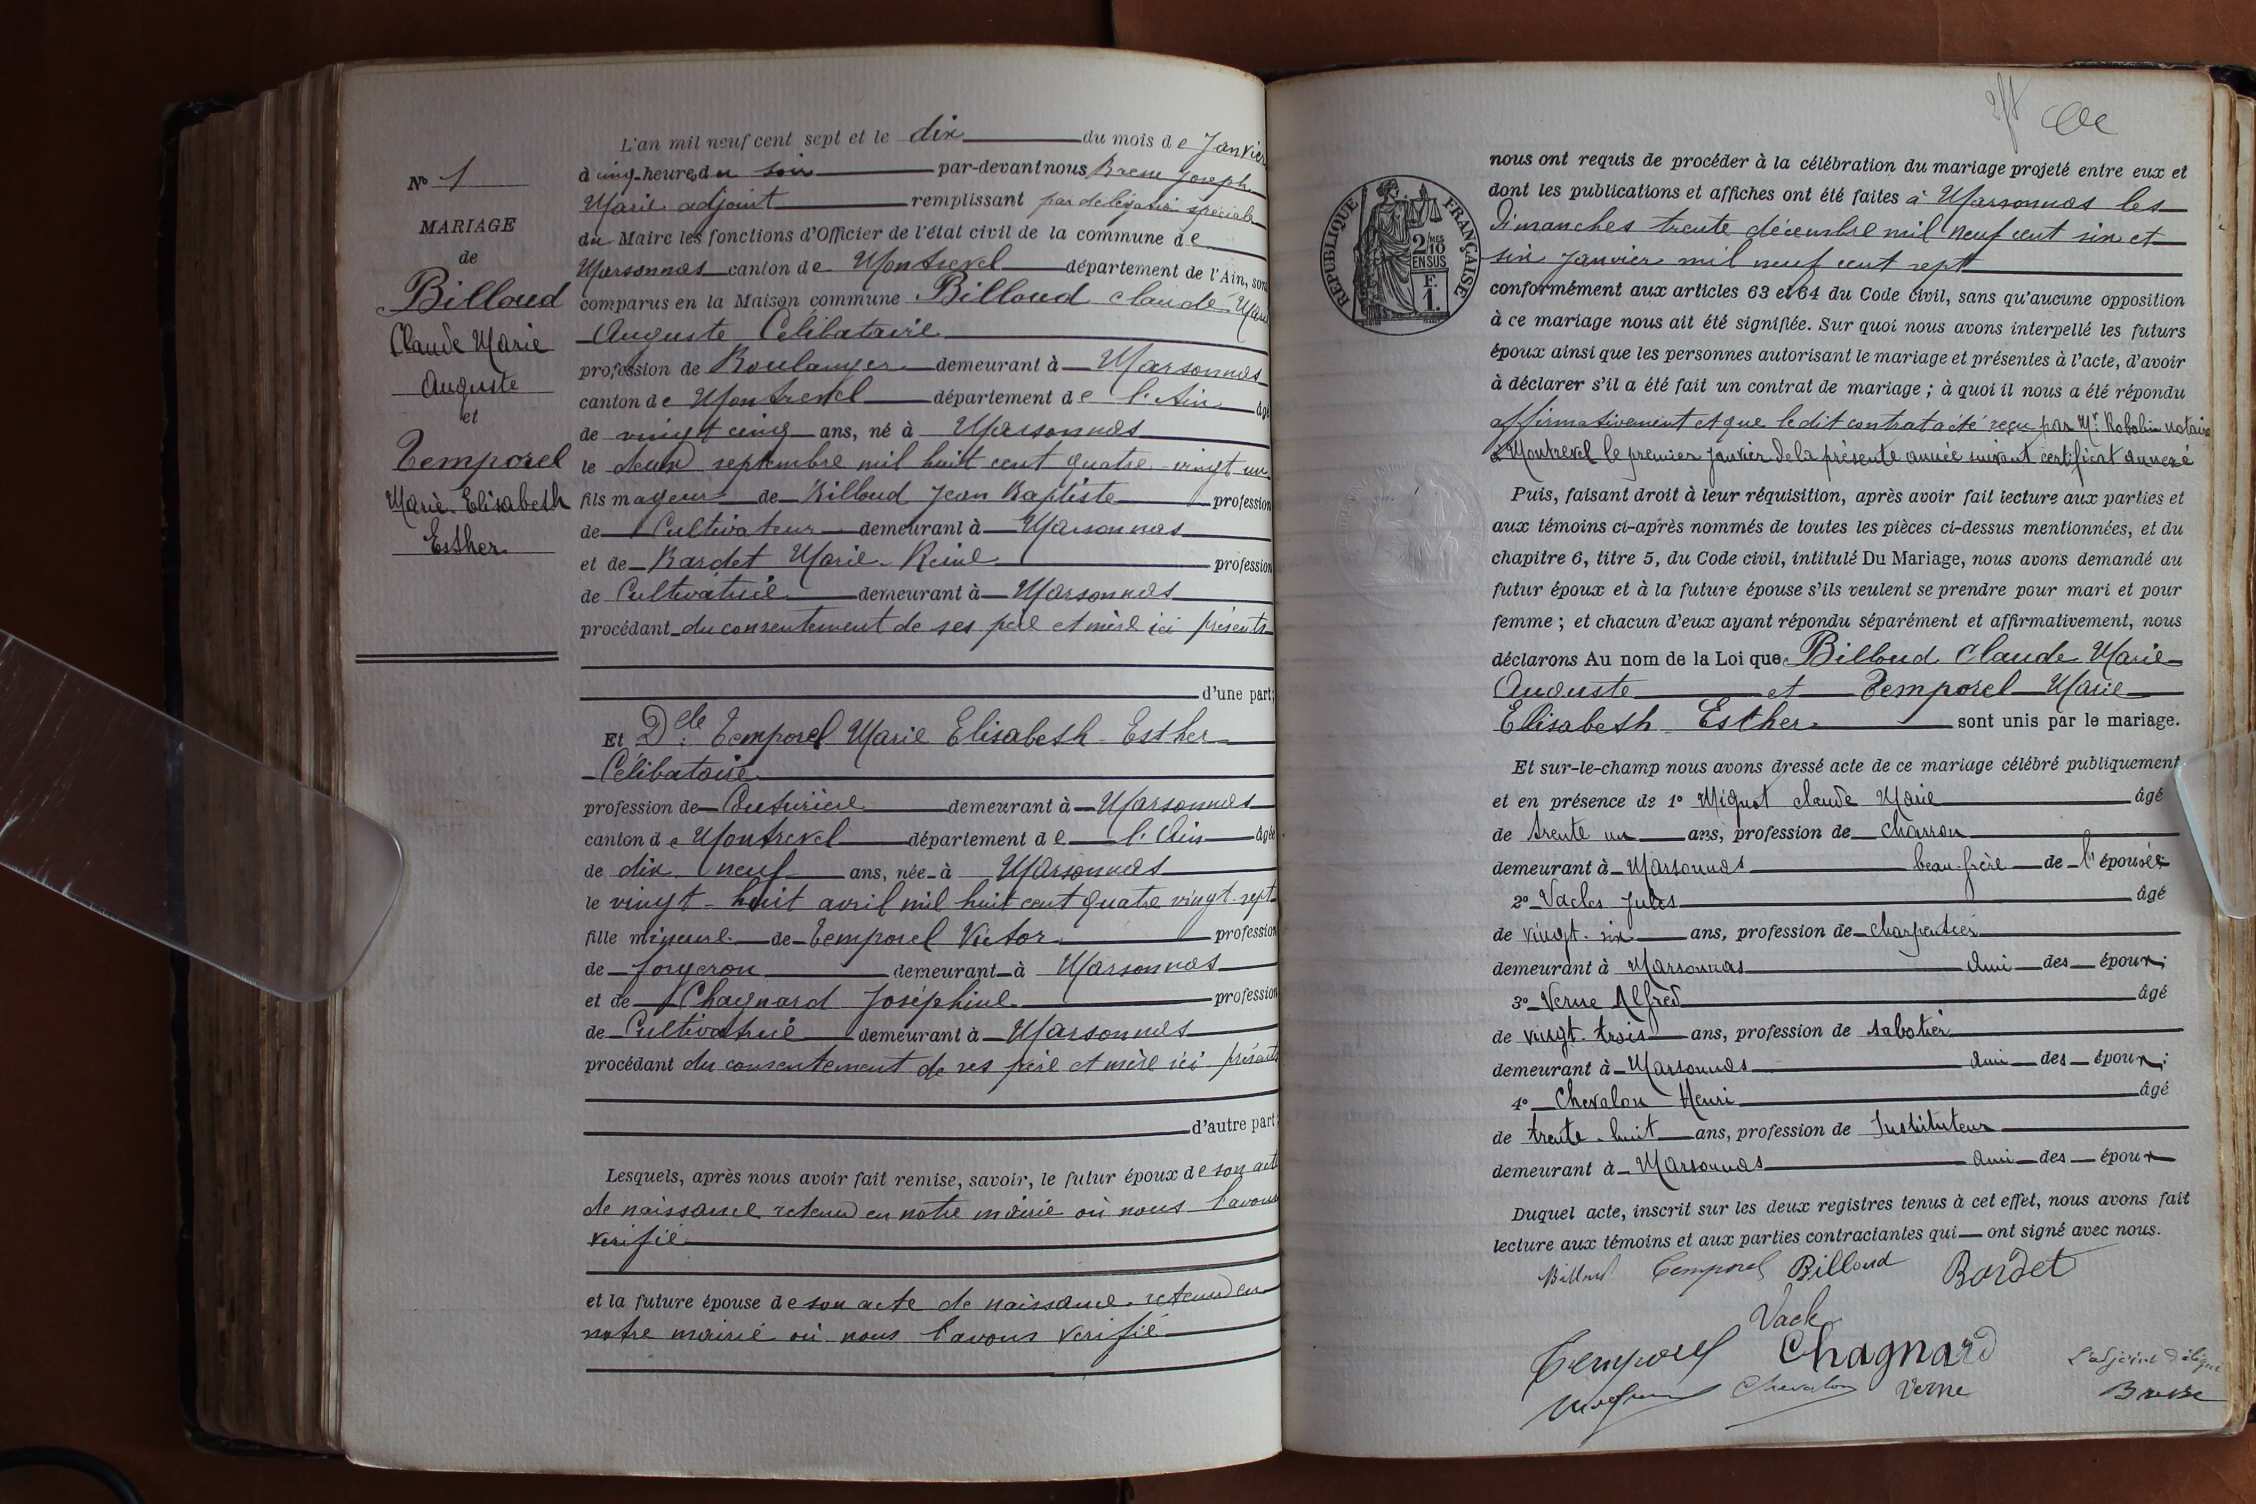 N° 1
MARIAGE
de
Billoud
Claude Marie
Auguste
et
Temporel
Marie Elisabeth
Esther
L'an mil neuf cent sept et le dix du mois de Janvier
à cinq heures du soir par-devant nous Joseph
Marie adjoint remplissant par délégation spéciale
du Maire les fonctions d'Officier de l'état civil de la commune de
Marsonnas canton de Montrevel département de l'Ain, sont
comparus en la Maison commune Billoud Claude Marie
Auguste Célibataire
profession de Boulanger demeurant à Marsonnas
canton de Montrevel département de l'Ain âgé
de vingt cinq ans, né à Marsonnas
le deux septembre mil huit cent quatre-vingt un
fils majeur de Billoud Jean Baptiste profession
de Cultivateur demeurant à Marsonnas
et de Bardet Marie Reine profession
de Cultivatrice demeurant à Marsonnas
procédant du consentement de ses père et mère ici présents
d'une part;
Et Delle Temporel Marie Elisabeth Esther
Célibataire
profession de Couturière demeurant à Marsonnas
canton de Montrevel département de l'Ain âgée
de dix neuf ans, née à Marsonnas
le vingt-huit avril mil huit cent quatre vingt-sept
fille mineure de Temporel Victor profession
de forgeron demeurant à Marsonnas
et de Chagnard Joséphine profession
de Cultivatrice demeurant à Marsonnas
procédant du consentement de ses père et mère ici présents
d'autre part;
Lesquels, après nous avoir fait remise, savoir, le futur époux de son acte
de naissance retenu en notre mairie où nous l'avons
vérifié
et la future épouse de son acte de naissance retenu en
notre mairie où nous l'avons vérifié
RÉPUBLIQUE FRANÇAISE
2/10 MES
EN SUS
F.
1.
nous ont requis de procéder à la célébration du mariage projeté entre eux et
dont les publications et affiches ont été faites à Marsonnas les
Dimanches trente décembre mil neuf cent six et
six janvier mil neuf cent sept
conformément aux articles 63 et 64 du Code civil, sans qu'aucune opposition
à ce mariage nous ait été signifiée. Sur quoi nous avons interpellé les futurs
époux ainsi que les personnes autorisant le mariage et présentes à l'acte, d'avoir
à déclarer s'il a été fait un contrat de mariage ; à quoi il nous a été répondu
affirmativement et que ledit contrat a été reçu par Mr Robolin notaire
à Montrevel le premier janvier de la présente année suivant certificat annexé
Puis, faisant droit à leur réquisition, après avoir fait lecture aux parties et
aux témoins ci-après nommés de toutes les pièces ci-dessus mentionnées, et du
chapitre 6, titre 5, du Code civil, intitulé Du Mariage, nous avons demandé au
futur époux et à la future épouse s'ils veulent se prendre pour mari et pour
femme ; et chacun d'eux ayant répondu séparément et affirmativement, nous
déclarons Au nom de la Loi que Billoud Claude Marie
Auguste et Temporel Marie
Elisabeth Esther sont unis par le mariage.
Et sur-le-champ nous avons dressé acte de ce mariage célébré publiquement
et en présence de 1° Miguet Claude Marie âgé
de trente un ans, profession de charron
demeurant à Marsonnas beau-frère de l'épousée;
2° Jules âgé
de vingt-six ans, profession de charpentier
demeurant à Marsonnas Ami des époux;
3° Verne Alfred âgé
de vingt-trois ans, profession de sabotier
demeurant à Marsonnas Ami des époux;
4° Chevalon Henri âgé
de trente-huit ans, profession de Instituteur
demeurant à Marsonnas ami des époux
Duquel acte, inscrit sur les deux registres tenus à cet effet, nous avons fait
lecture aux témoins et aux parties contractantes qui ont signé avec nous.
Billoud Temporel Billoud Bardet
Vach
Temporel Chagnard L'adjoint délégué
Chevalon Verne